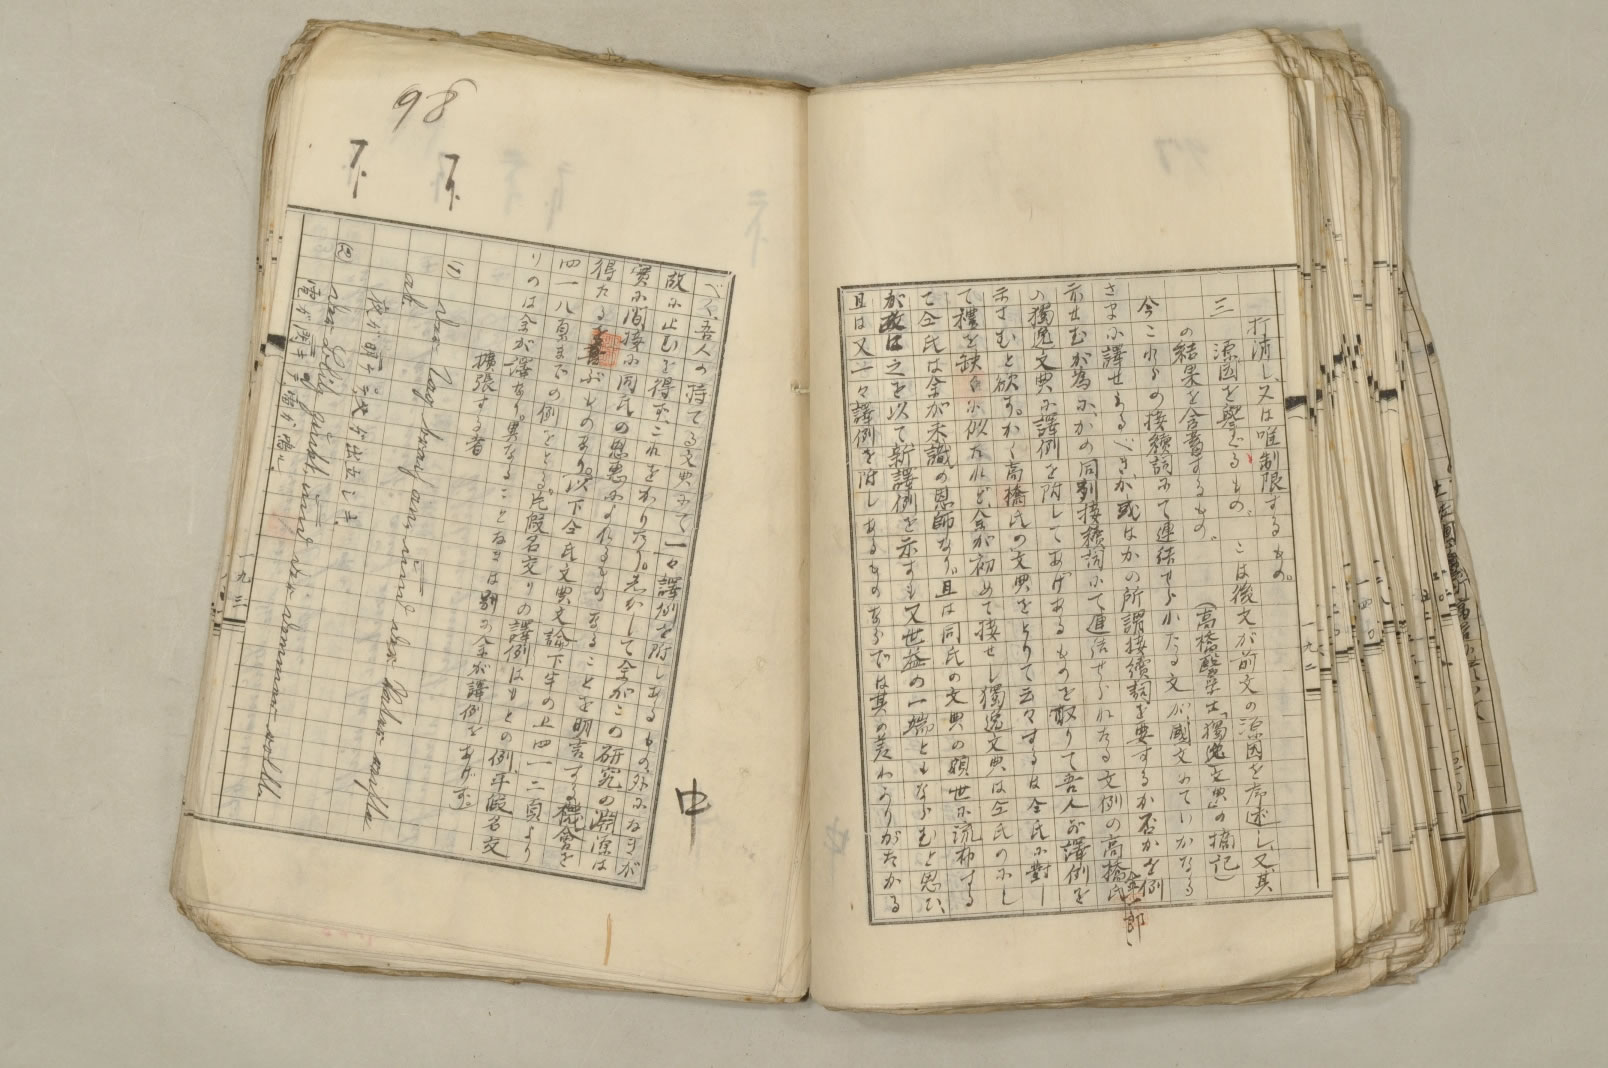 打消し、又は唯制限するもの。
三 源因を擧ぐるもの。こは後文が前文の源因を序述し、又其
の結果を含蓄するもの。(高橋 獨逸文典の摘記)
今これらの接續詞にて連結せられたる文が國文にていかなる
さまに譯せらるべきか或はかの所謂接續詞を要するか否かを例
示せむが為に、かの同列接續詞にて連結せられたる文例の高橋氏
金一郎
の獨逸文典に譯例を附してあげあるものを取りて吾人が譯例を
示さむと欲す。かく高橋氏の文典をとりて云々するは仝氏に對し
て禮を缺くに似たれど余が初めて接せし獨逸文典は仝氏のにし
て仝氏は余が未識の恩師なり。且は同氏の文典の頗世に流布する
が故に之を以て新譯例を示すも又世益の一端ともならむと思ひ、
且は又一々譯例を附しあるものあらでは其の差わかりがたかる
べく、吾人の持てる文典にて一々譯例を附しあるもの外になきが
故に止むを得ず、これをかりたり。しかして余がこの研究の淵源は
實に間接に同氏の恩惠によれるものなることを明言する機會を
得たるを喜ぶものなり。以下仝氏文典文論下半の上四一二頁より
四一八頁までの例をとる。片假名交りの譯例はもとの例、平假名交
りのは余が譯なり。異なることなきは別に余が譯例をあげず
擴張する者
(1) Der Tag brach an, und der Räuber
ab.
夜ガ明ケ、
(2) Der Blitz zuckt, und der Donner rollt.
電ガ閃キ雷ガ鳴ル
98
下 下
中
一九二
一九三